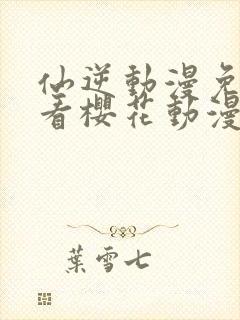 仙逆動漫免
看櫻花動漫
葉雪七